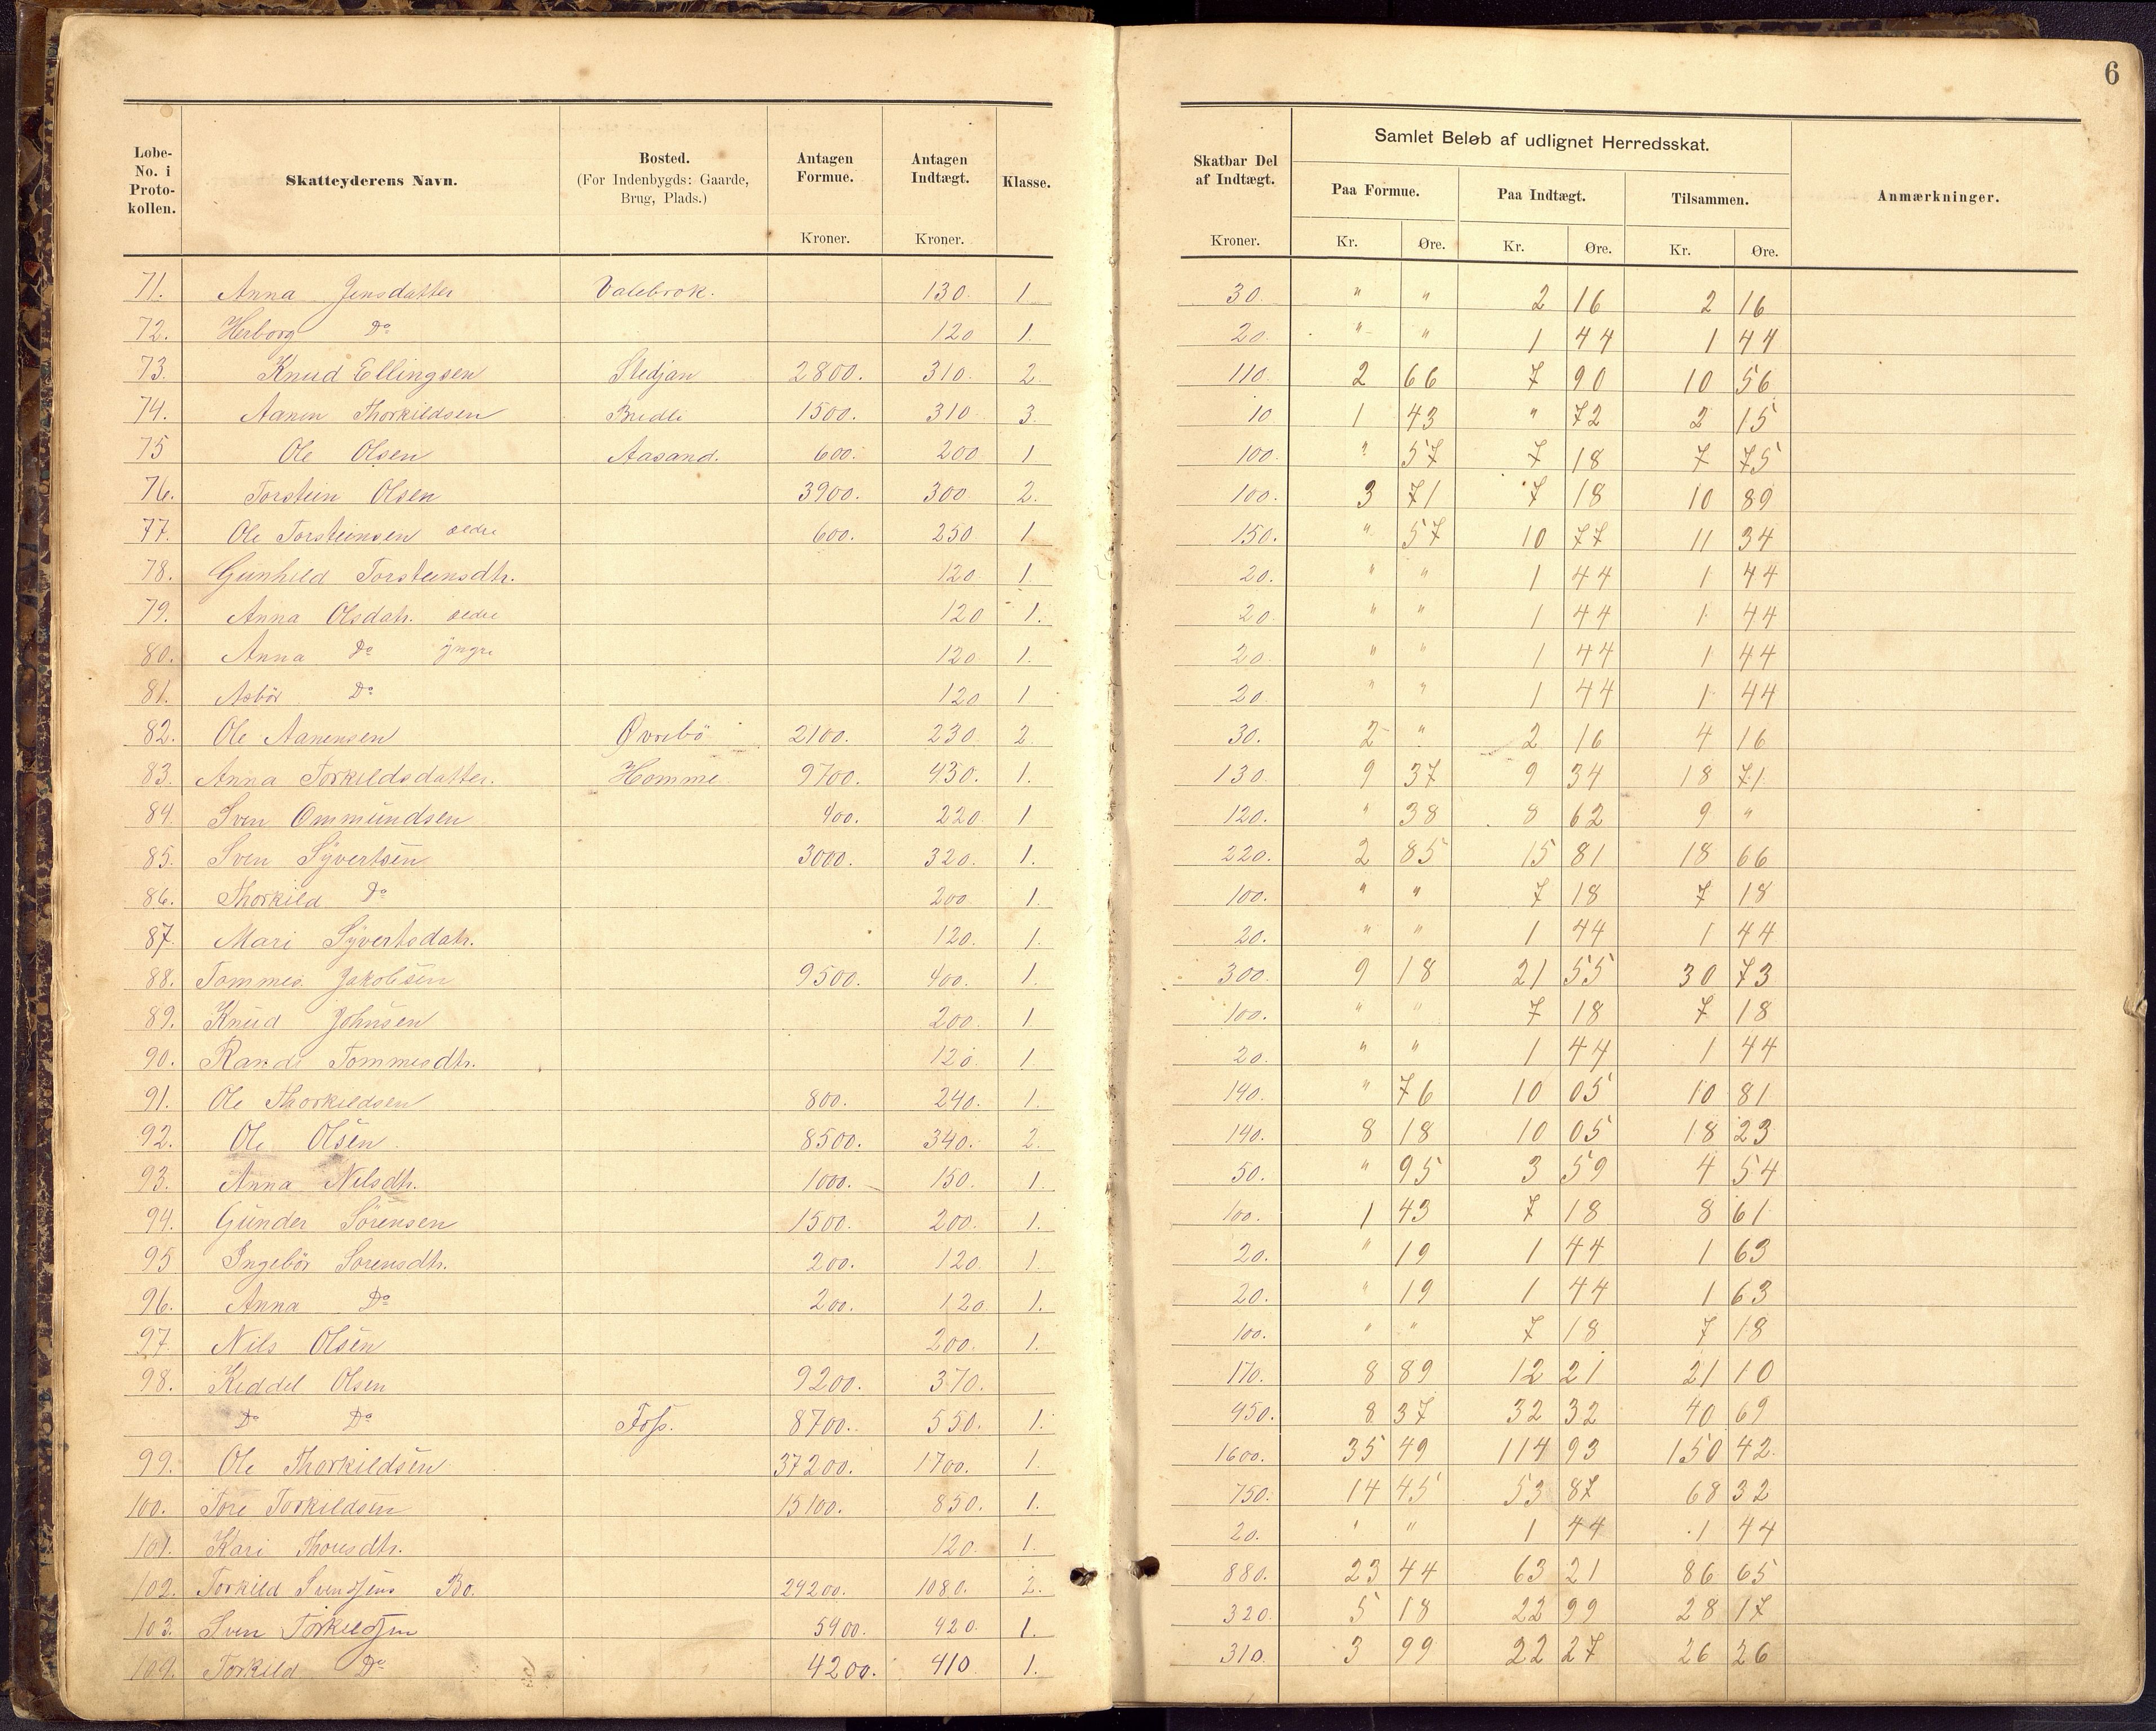 6
Løbe-No. i Protokollen. | Skatteyderens Navn. | Bosted. (For Indenbygds: Gaarde, Brug, Plads.) | Antagen Formue. Kroner. | Antagen Indtægt. Kroner. | Klasse. | Skatbar Del af Indtægt. Kroner. | Samlet Beløb af udlignet Herredsskat. Paa Formue. Kr. Øre. | Paa Indtægt. Kr. Øre. | Tilsammen. Kr. Øre. | Anmærkninger.
71. Anna Jensdatter Valebrok. 130. 1 30. " " 2 16 2 16
72. Herborg Do 120 1. 20. " " 1 44 1 44
73. Knud Ellingsen Stedjan 2800. 310. 2. 110. 2 66 7 90 10 56
74. Aanen Thorkildsen Bredli 1500. 310 3. 10 1 43 " 72 2 15
75 Ole Olsen Aasand. 600. 200 1 100. " 57 7 18 7 75
76. Torstein Olsen 3900. 300 2. 100. 3 71 7 18 10 89
77. Ole Torsteinsen ældre 600. 250 1 150. " 57 10 77 11 34
78. Gunhild Torsteinsdtr. 120 1. 20. " " 1 44 1 44
79. Anna Olsdatr. ældre 120 1. 20. " " 1 44 1 44
80. Anna Do yngre 120 1. 20. " " 1 44 1 44
81. Asbör Do 120 1 20. " " 1 44 1 44
82. Ole Aanensen Øvrebö 2100. 230 2 30. 2 " 2 16 4 16
83. Anna Torkildsdatter. Homme. 9700. 430. 1. 130. 9 37 9 34 18 71
84. Sven Ommundsen 400. 220 1 120. " 38 8 62 9 "
85. Sven Syvertsen 3000. 320. 1. 220. 2 85 15 81 18 66
86. Thorkild Do 200 1. 100. " " 7 18 7 18
87. Mari Syvertsdatr. 120. 1. 20. " " 1 44 1 44
88. Tommes Jakobsen 9500. 400. 1. 300. 9 18 21 55 30 73
89. Knud Johnsen 200. 1 100. " " 7 18 7 18
90. Randi Tommesdtr. 120. 1. 20. " " 1 44 1 44
91. Ole Thorkildsen 800. 240. 1. 140. " 76 10 05 10 81
92. Ole Olsen 8500. 340. 2. 140. 8 18 10 05 18 23
93. Anna Nilsdtr. 1000. 150. 1. 50. " 95 3 59 4 54
94. Gunder Sörensen 1500. 200. 1. 100. 1 43 7 18 8 61
95 Ingebör Sorensdtr. 200. 120. 1. 20. " 19 1 44 1 63
96. Anna Do 200. 120 1. 20. " 19 1 44 1 63
97. Nils Olsen 200. 1. 100. " " 7 18 7 18
98. Keddel Olsen 9200. 370. 170. 8 89 12 21 21 10
Do Do Foss. 8700. 550. 1. 450. 8 37 32 32 40 69
99. Ole Thorkildsen 37200. 1700. 1. 1600. 35 49 114 93 150 42
100. Tore Torkildsen 15100. 850. 1. 750. 14 45 53 87 68 32
101. Kari Thoresdtr. 120. 1. 20. " " 1 44 1 44
102. Torkild Svendsens Bo. 24200. 1080. 2. 880. 23 44 63 21 86 65
103. Sven Torkildsen 5400. 420. 1. 320. 5 18 22 99 28 17
104. Torkild Do 4200. 410 1. 310 3 99 22 27 26 26